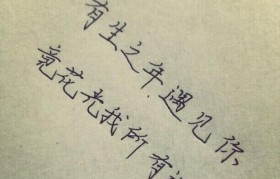 有生之年.遇见你
竟花光我所有